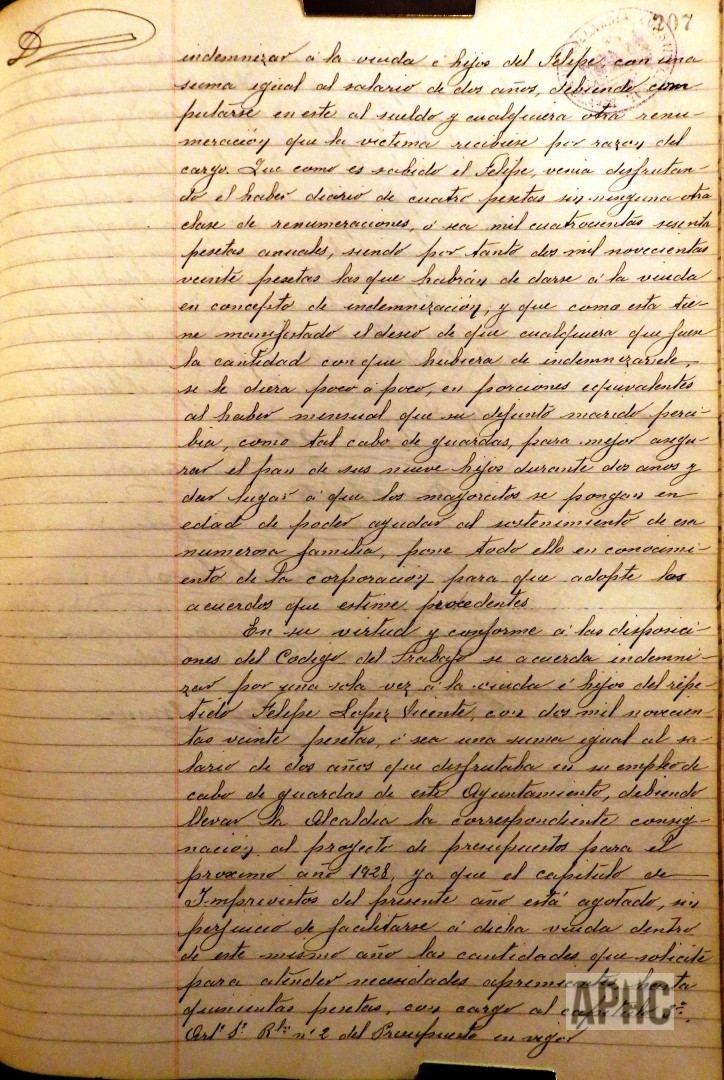 207
indemnizar á la viuda é hijos del Felipe, con una
suma igual al salario de dos años, debiendo com
putarse en este al sueldo y cualquiera otra renu-
meración que la victima recibiese por razon del
cargo. Que como es sabido el Felipe, venia disfrutan-
do el haber diario de cuatro pesetas sin ninguna otra
clase de renumeraciones, ó sea mil cuatrocientas sesenta
pesetas anuales, siendo por tanto dos mil novecientas
veinte pesetas las que habrán de darse á la viuda
en concepto de indemnización; y que como esta tie-
ne manifestado el deseo de que cualquiera que fuere
la cantidad con que hubiera de indemnizarsele,
se le diera poco á poco, en porciones equivalentes
al haber mensual que su difunto marido perci-
bia, como tal cabo de guardas, para mejor asegu-
rar el pan de sus nueve hijos durante dos años y
dar lugar á que los mayorcitos se pongan en
edad de poder ayudar al sostenimiento de esa
numerosa familia, pone todo ello en conocimi-
ento de la corporación para que adopte los
acuerdos que estime procedentes
En su virtud y conforme á las disposici-
ones del Codigo del Trabajo se acuerda indemni-
zar por una sola vez á la viuda é hijos del repe-
tido Felipe Lopez Vicente, con dos mil novecien-
tas veinte pesetas, ó sea una suma igual al sa-
lario de dos años que disfrutaba en su empleo de
cabo de guardas de este Ayuntamiento, debiendo
llevar la Alcaldia la correspondiente consig-
nación al proyecto de presupuestos para el
proximo año 1928, ya que el capitulo de
Imprevistos del presente año está agotado, sin
perjuicio de facilitarse á dicha viuda dentro
de este mismo año las cantidades que solicite
para atender necesidades apremiantes hasta
quinientas pesetas, con cargo al
Artº Rlª nº 2 del Presupuesto en vigor
APHC